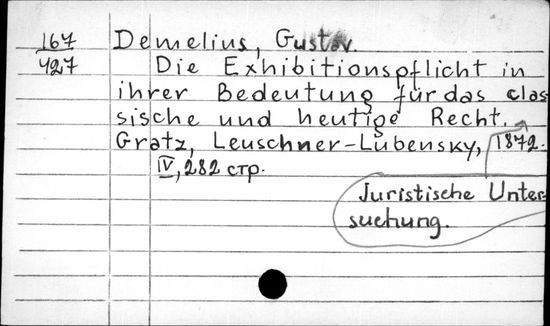 167
427
Demelius, Gustav.
Die Exhibitionspflicht in
ihrer Bedeutung für das clas
sische und heutige Recht.
Gratz, Leuschner-Lubensky, 1872.
IV, 282 стр.
Juristische Unter-
suchung.